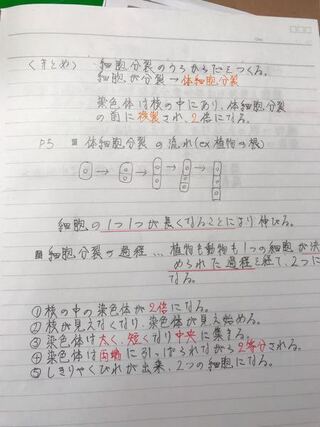 〈まとめ〉 細胞分裂のうちからだをつくる。
細胞が分裂→体細胞分裂
染色体は核の中にあり、体細胞分裂
の前に複製され、2倍になる。
P5 体細胞分裂の流れ(ex 植物の根)
細胞の1つ1つが長くなることにより伸びる。
細胞分裂の過程…植物も動物も1つの細胞が決
められた過程を経て、2つに
なる。
①核の中の染色体が2倍になる。
②核が見えなくなり、染色体が見え始める。
③染色体は太く、短くなり中央に集まる。
④染色体は両端に引っぱられながら2等分される。
⑤しきりやくびれが出来、2つの細胞になる。